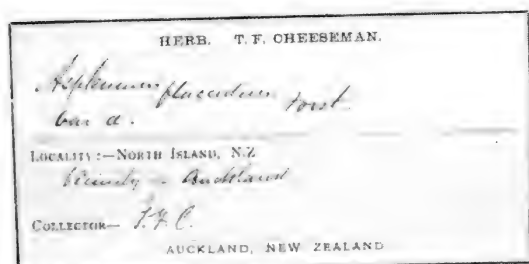 HERB. T. F. CHEESEMAN.
Asplenium flaccidum Forst.
var a.
LOCALITY:—NORTH ISLAND, N.Z
Vicinity - Auckland
COLLECTOR— T. F. C.
AUCKLAND, NEW ZEALAND